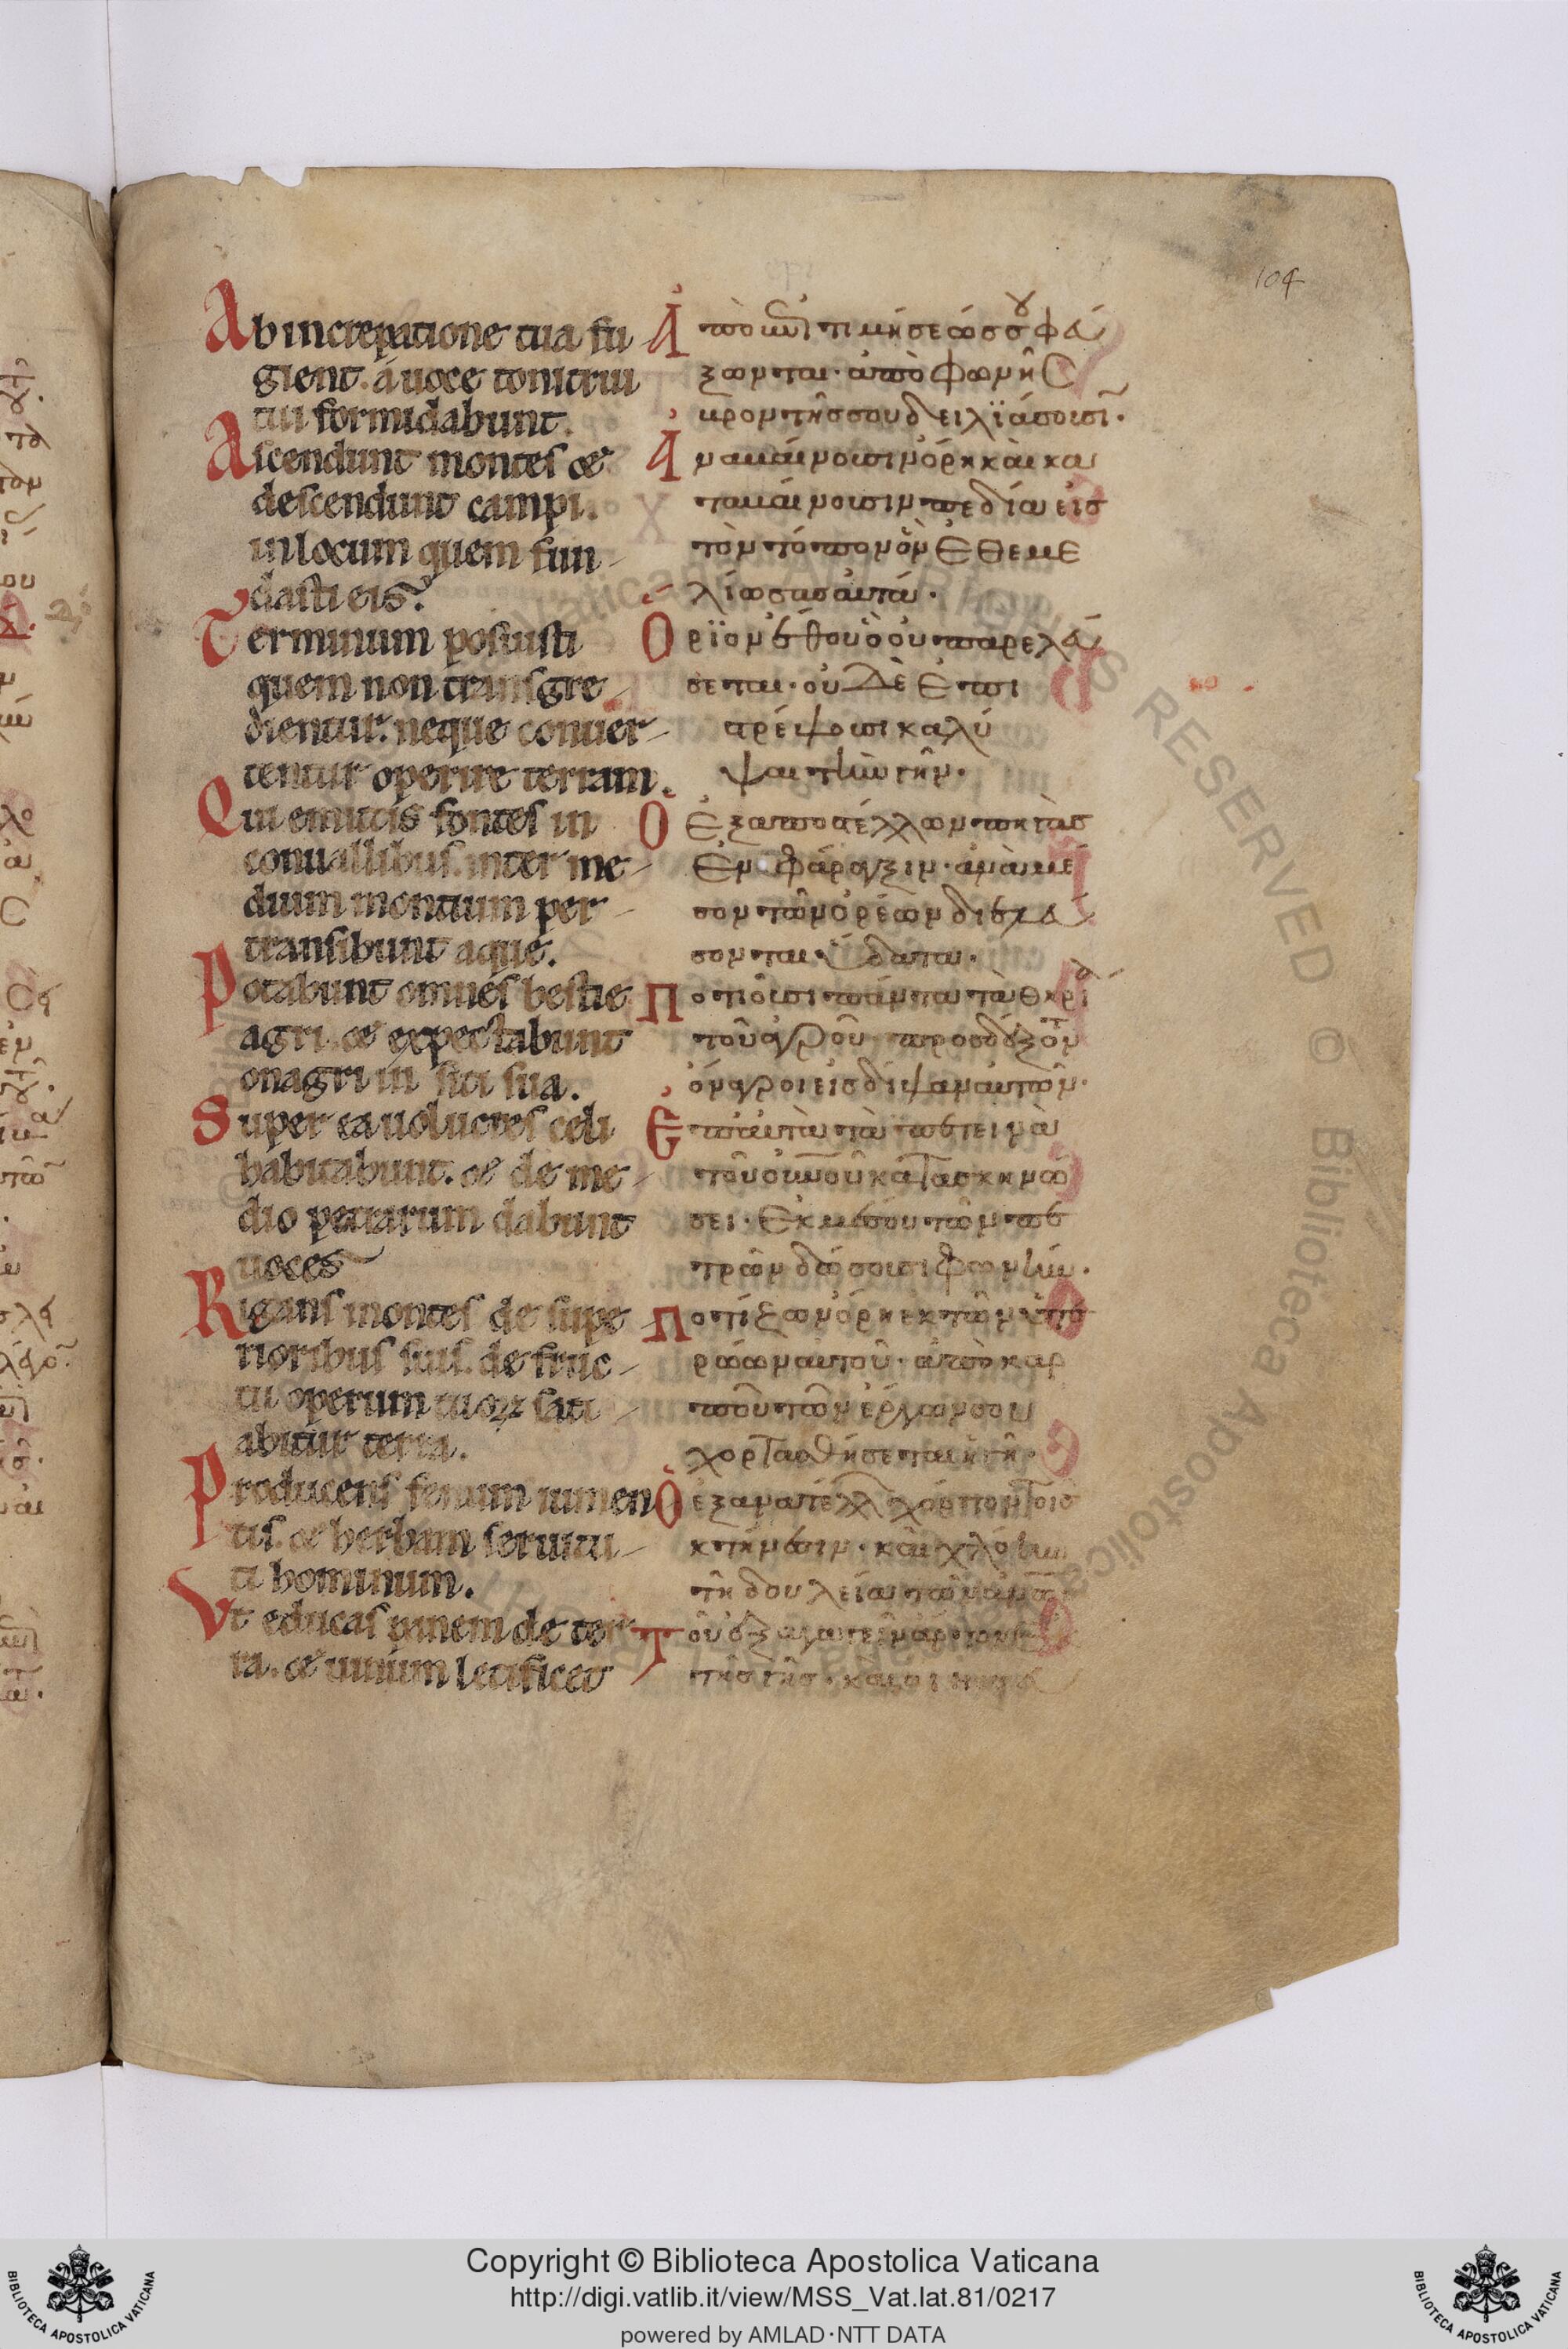 104
Ab increpatione tua fu
gient. a uoce tonitrui
tui formidabunt.
Ascendunt montes et
descendunt campi.
in locum quem fun
dasti eis.
Terminum posuisti
quem non transgre
dientur. neque conuer
tentur operire terram.
Qui emittis fontes in
conuallibus. inter me
dium montium per
transibunt aque.
Potabunt omnes bestie
agri. et expectabunt
onagri in siti sua.
Super ea uolucres celi
habitabunt. et de me
dio petrarum dabunt
uoces
Rigans montes de supe
rioribus suis. de fruc
tu operum tuoꝝ sati
abitur terra.
Producens fenum iumen
tis. et herbam seruitu
ti hominum.
Vt educas panem de ter
ra. et uinum letificet
Ἀπὸ ἐπιτιμήσεώς σου φεύ
ξωνται· ἀπὸ φωνῆς
βροντῆς σου δειλϊάσοισι.
Ἀναβαίνοισιν ὄρη καὶ κα
ταβαίνοισιν πεδία εἰς
τὸν τόπον ὃν ἐθεμε
λίωσας αὐτά.
Ὅρϊον ἔθου ὃ οὐ παρελεύ
σεται· οὐδὲ ἐπισ
τρέψοισι καλύ
ψαι τὴν γῆν.
Ὁ ἐξαποστέλλων πηγὰς
ἐν φάραγξιν· ἀνὰ μέ
σον τῶν ὀρέων διελεύ
σονται ὕδατα.
Ποτιοῦσι πάντα τὰ θηρία
τοῦ ἀγροῦ· προσδέξονται
ὄναγροι εἰς δίψαν αὐτῶν.
Ἐπ' αὐτὰ τὰ πετεινὰ
τοῦ οὐνοῦ κατασκηνώ
σει· ἐκ μέσου τῶν πε
τρῶν δώσοισι φωνήν.
Ποτίζων ὄρη ἐκ τῶν ὑπε
ρώων αὐτοῦ· ἀπὸ καρ
ποῦ τῶν ἔργων σου
χορτασθήσεται ἡ γῆ.
Ὁ ἐξανατέλλων χόρτον τοῖς
κτήνεσιν· καὶ χλόην
τῇ δουλείᾳ τῶν ἀνων
Τοῦ ἐξαγαγεῖν ἄρτον ἐκ
τῆς γῆς· καὶ οἶνος
Copyright © Biblioteca Apostolica Vaticana
http://digi.vatlib.it/view/MSS_Vat.lat.81/0217
powered by AMLAD·NTT DATA